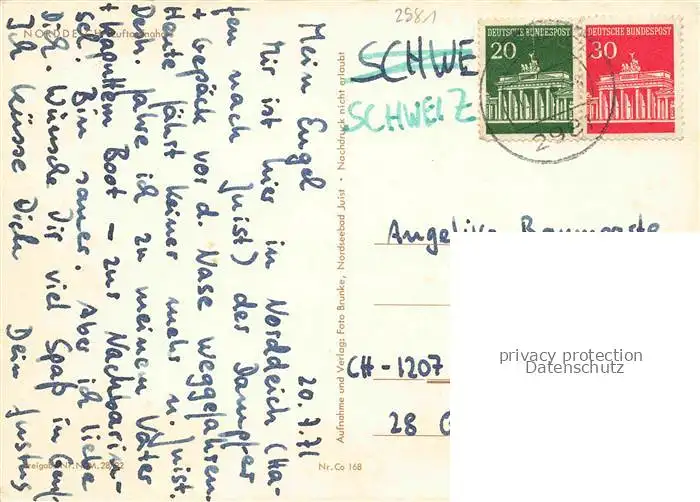 2981
NORDDEICH Luftaufnahme
20.7.71
Mein Engel
Mir ist hier in Norddeich (Ha-
fen nach Juist) der Dampfer
+ Gepäck vor d. Nase weggefahren.
Heute fährt keiner mehr n. Juist.
Desh. fahre ich zu meinem Vater
+ kaputtem Boot - zur Nachbarin-
sel. Bin sauer. Aber ich liebe
Dich. Wünsche Dir viel Spaß in Genf.
Ich küsse Dich Dein Justus
Nr. Co 168
Aufnahme und Verlag: Foto Brunke, Nordseebad Juist · Nachdruck nicht erlaubt
SCHWE
SCHWEIZ
DEUTSCHE BUNDESPOST
20
DEUTSCHE BUNDESPOST
30
Angelika
CH-1207
28 G
privacy protection
Datenschutz